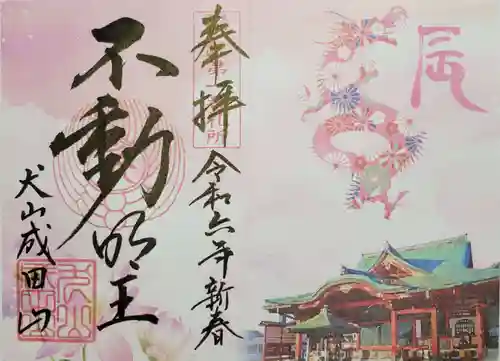 奉拝
令和六年新春
不動明王
犬山成田山
辰